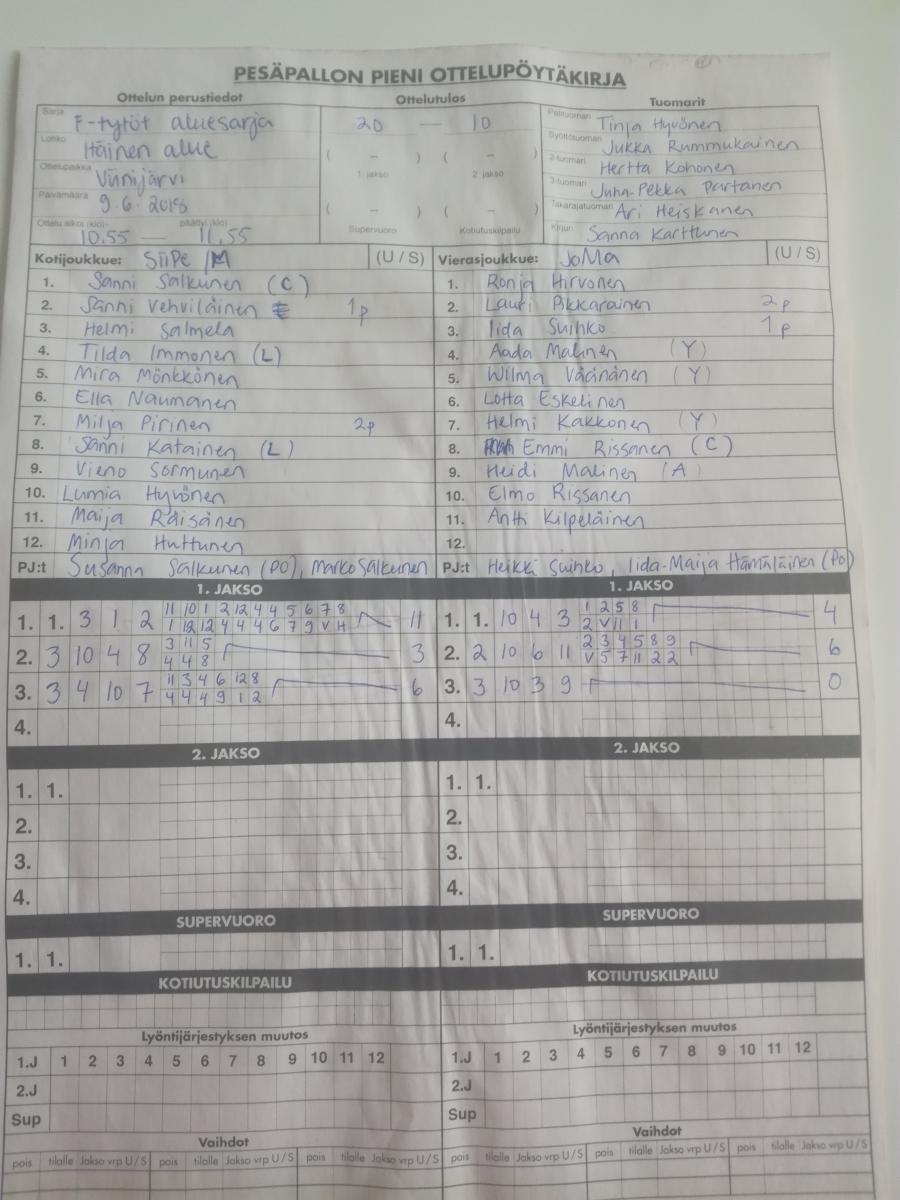 PESÄPALLON PIENI OTTELUPÖYTÄKIRJA
Ottelun perustiedot Ottelutulos Tuomarit
Sarja F-tytöt aluesarja 20 — 10 Pelituomari Tinja Hyvönen
Lohko Itäinen alue ( – ) ( – ) Syöttötuomari Jukka Rummukainen
Ottelupaikka Viinijärvi 1. jakso 2. jakso 2-tuomari Hertta Kohonen
Päivämäärä 9.6.2018 3-tuomari Juha-Pekka Partanen
( – ) ( – ) Takarajatuomari Ari Heiskanen
Ottelu alkoi (klo) 10.55 — päättyi (klo) 11.55 Supervuoro Kotiutuskilpailu Kirjuri Sanna Karttunen
Kotijoukkue: SiiPe /M (U / S) Vierasjoukkue: JoMa (U / S)
1. Sanni Salkunen (C) 1. Ronja Hirvonen
2. Sanni Vehviläinen 1p 2. Lauri Pikkarainen 2p
3. Helmi Salmela 3. Iida Suihko 1p
4. Tilda Immonen (L) 4. Aada Malinen (Y)
5. Mira Mönkkönen 5. Wilma Väänänen (Y)
6. Ella Naumanen 6. Lotta Eskelinen
7. Milja Pirinen 2p 7. Helmi Kakkonen (Y)
8. Sanni Katainen (L) 8. Emmi Rissanen (C)
9. Vieno Sormunen 9. Heidi Malinen (A)
10. Lumia Hyvönen 10. Elmo Rissanen
11. Maija Räisänen 11. Antti Kilpeläinen
12. Minja Huttunen 12.
PJ:t Susanna Salkunen (PO), Marko Salkunen PJ:t Heikki Suihko, Iida-Maija Hämäläinen (PO)
1. JAKSO 1. JAKSO
11 10 1 2 12 4 4 5 6 7 8 1 2 5 8
1. 1. 3 1 2 1 12 12 4 4 4 6 7 9 V H 11 1. 1. 10 4 3 2 V 11 1 4
3 11 5 2 3 4 5 8 9
2. 3 10 4 8 4 4 8 3 2. 2 10 6 11 V 5 7 11 2 2 6
11 3 4 6 12 8
3. 3 4 10 7 4 4 4 9 1 2 6 3. 3 10 3 9 0
4. 4.
2. JAKSO 2. JAKSO
1. 1. 1. 1.
2. 2.
3. 3.
4. 4.
SUPERVUORO SUPERVUORO
1. 1. 1. 1.
KOTIUTUSKILPAILU KOTIUTUSKILPAILU
Lyöntijärjestyksen muutos Lyöntijärjestyksen muutos
1.J 1 2 3 4 5 6 7 8 9 10 11 12 1.J 1 2 3 4 5 6 7 8 9 10 11 12
2.J 2.J
Sup Sup
Vaihdot Vaihdot
pois tilalle Jakso vrp U / S pois tilalle Jakso vrp U / S pois tilalle Jakso vrp U / S pois tilalle Jakso vrp U / S pois tilalle Jakso vrp U / S pois tilalle Jakso vrp U / S